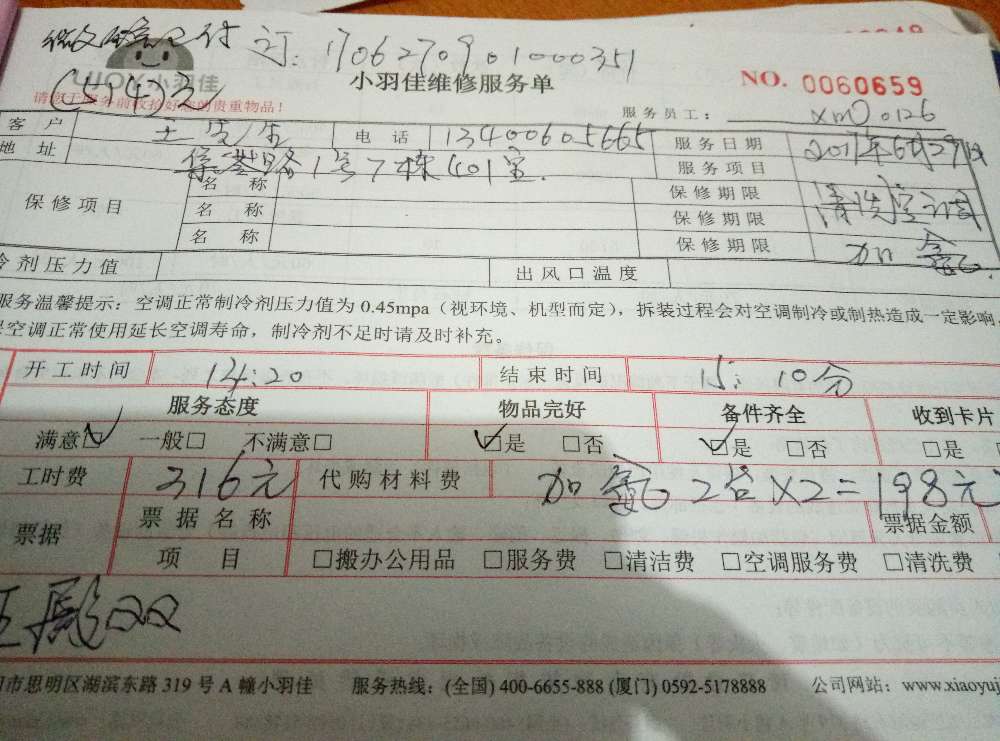 微信已付 订:1706270901000351
小羽佳
小羽佳维修服务单 NO. 0060659
请您于服务前收拾好您的贵重物品!
服务员工: XM00126
客 户 王先生 电 话 13400605665 服务日期 2017年6月29日
地 址 路1号7栋401室. 服务项目 清洗空调
保修项目 名 称 保修期限 加氟
名 称 保修期限
名 称 保修期限
冷剂压力值 出风口温度
服务温馨提示:空调正常制冷剂压力值为 0.45mpa(视环境、机型而定),拆装过程会对空调制冷或制热造成一定影响,
空调正常使用延长空调寿命,制冷剂不足时请及时补充。
开工时间 14:20 结束时间 15:10分
服务态度 物品完好 备件齐全 收到卡片
满意☑ 一般□ 不满意□ ☑是 □否 ☑是 □否 □是
工时费 316元 代购材料费 加氟2台X2=198元
票据 票据名称 票据金额
项 目 □搬办公用品 □服务费 □清洁费 □空调服务费 □清洗费
市思明区湖滨东路 319 号 A 幢小羽佳 服务热线:(全国) 400-6655-888 (厦门) 0592-5178888 公司网站:www.xiaoyuj